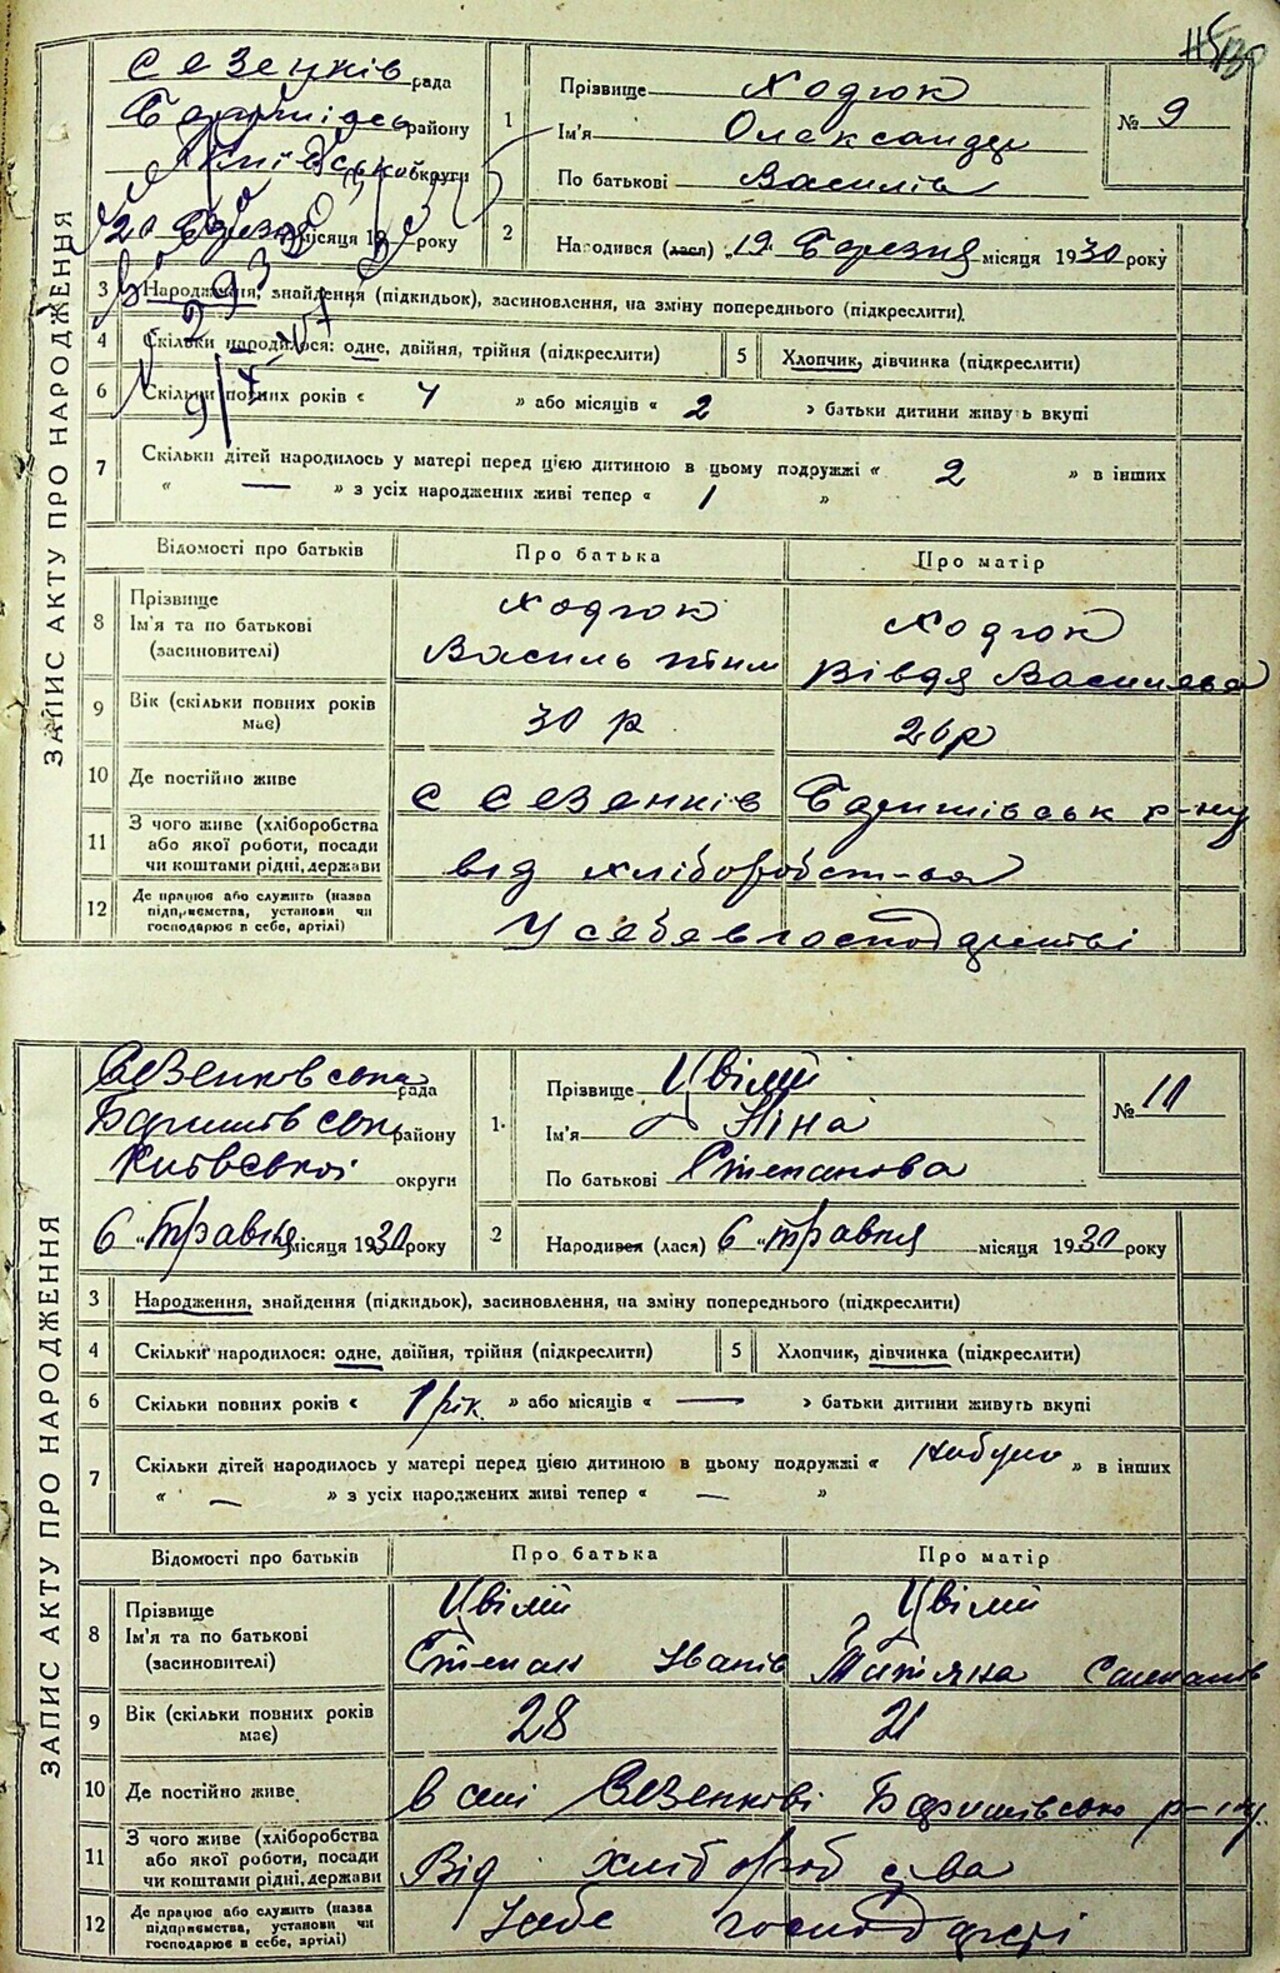 ЗАПИС АКТУ ПРО НАРОДЖЕННЯ
Сезенків рада
району
округи
20 Березня місяця 19 року
1
Прізвище Ходюк
Ім'я Олександр
По батькові Василів
№ 9
2
Народився (лася) „19" Березня місяця 1930 року
3 Народження, знайдення (підкидьок), засиновлення, на зміну попереднього (підкреслити)
4 Скільки народилося: одне, двійня, трійня (підкреслити)
5 Хлопчик, дівчинка (підкреслити)
6 Скільки повних років « 4 » або місяців « 2 » батьки дитини живуть вкупі
7 Скільки дітей народилось у матері перед цією дитиною в цьому подружжі « 2 » в інших
« — » з усіх народжених живі тепер « 1 »
Відомості про батьків Про батька Про матір
8 Прізвище
Ім'я та по батькові
(засиновителі)
Ходюк
Василь
Ходюк
Вівдя Василева
9 Вік (скільки повних років
має)
30 р
26 р
10 Де постійно живе с Сезенків Баришівськ р-ну
11 З чого живе (хліборобства
або якої роботи, посади
чи коштами рідні, держави
від хліборобст-ва
12 Де працює або служить (назва
підприємства, установи чи
господарює в себе, артілі)
У себе в господарстві
ЗАПИС АКТУ ПРО НАРОДЖЕННЯ
Сезенковська рада
Баришівськ району
Київської округи
6 „Травня місяця 1930 року
1.
Прізвище Цвілий
Ім'я Ніна
По батькові Степанова
№ 11
2
Народився (лася) 6 „травня місяця 1930 року
3 Народження, знайдення (підкидьок), засиновлення, на зміну попереднього (підкреслити)
4 Скільки народилося: одне, двійня, трійня (підкреслити)
5 Хлопчик, дівчинка (підкреслити)
6 Скільки повних років « 1 рік » або місяців « — » батьки дитини живуть вкупі
7 Скільки дітей народилось у матері перед цією дитиною в цьому подружжі « небуло » в інших
« — » з усіх народжених живі тепер « — »
Відомості про батьків Про батька Про матір
8 Прізвище
Ім'я та по батькові
(засиновителі)
Цвілий
Степан Іванів
Цвілий
Титяна Степанів
9 Вік (скільки повних років
має)
28
21
10 Де постійно живе в селі Сезенкові Баришівсько р-ну
11 З чого живе (хліборобства
або якої роботи, посади
чи коштами рідні, держави
Від хліборобства
12 Де працює або служить (назва
підприємства, установи чи
господарює в себе, артілі)